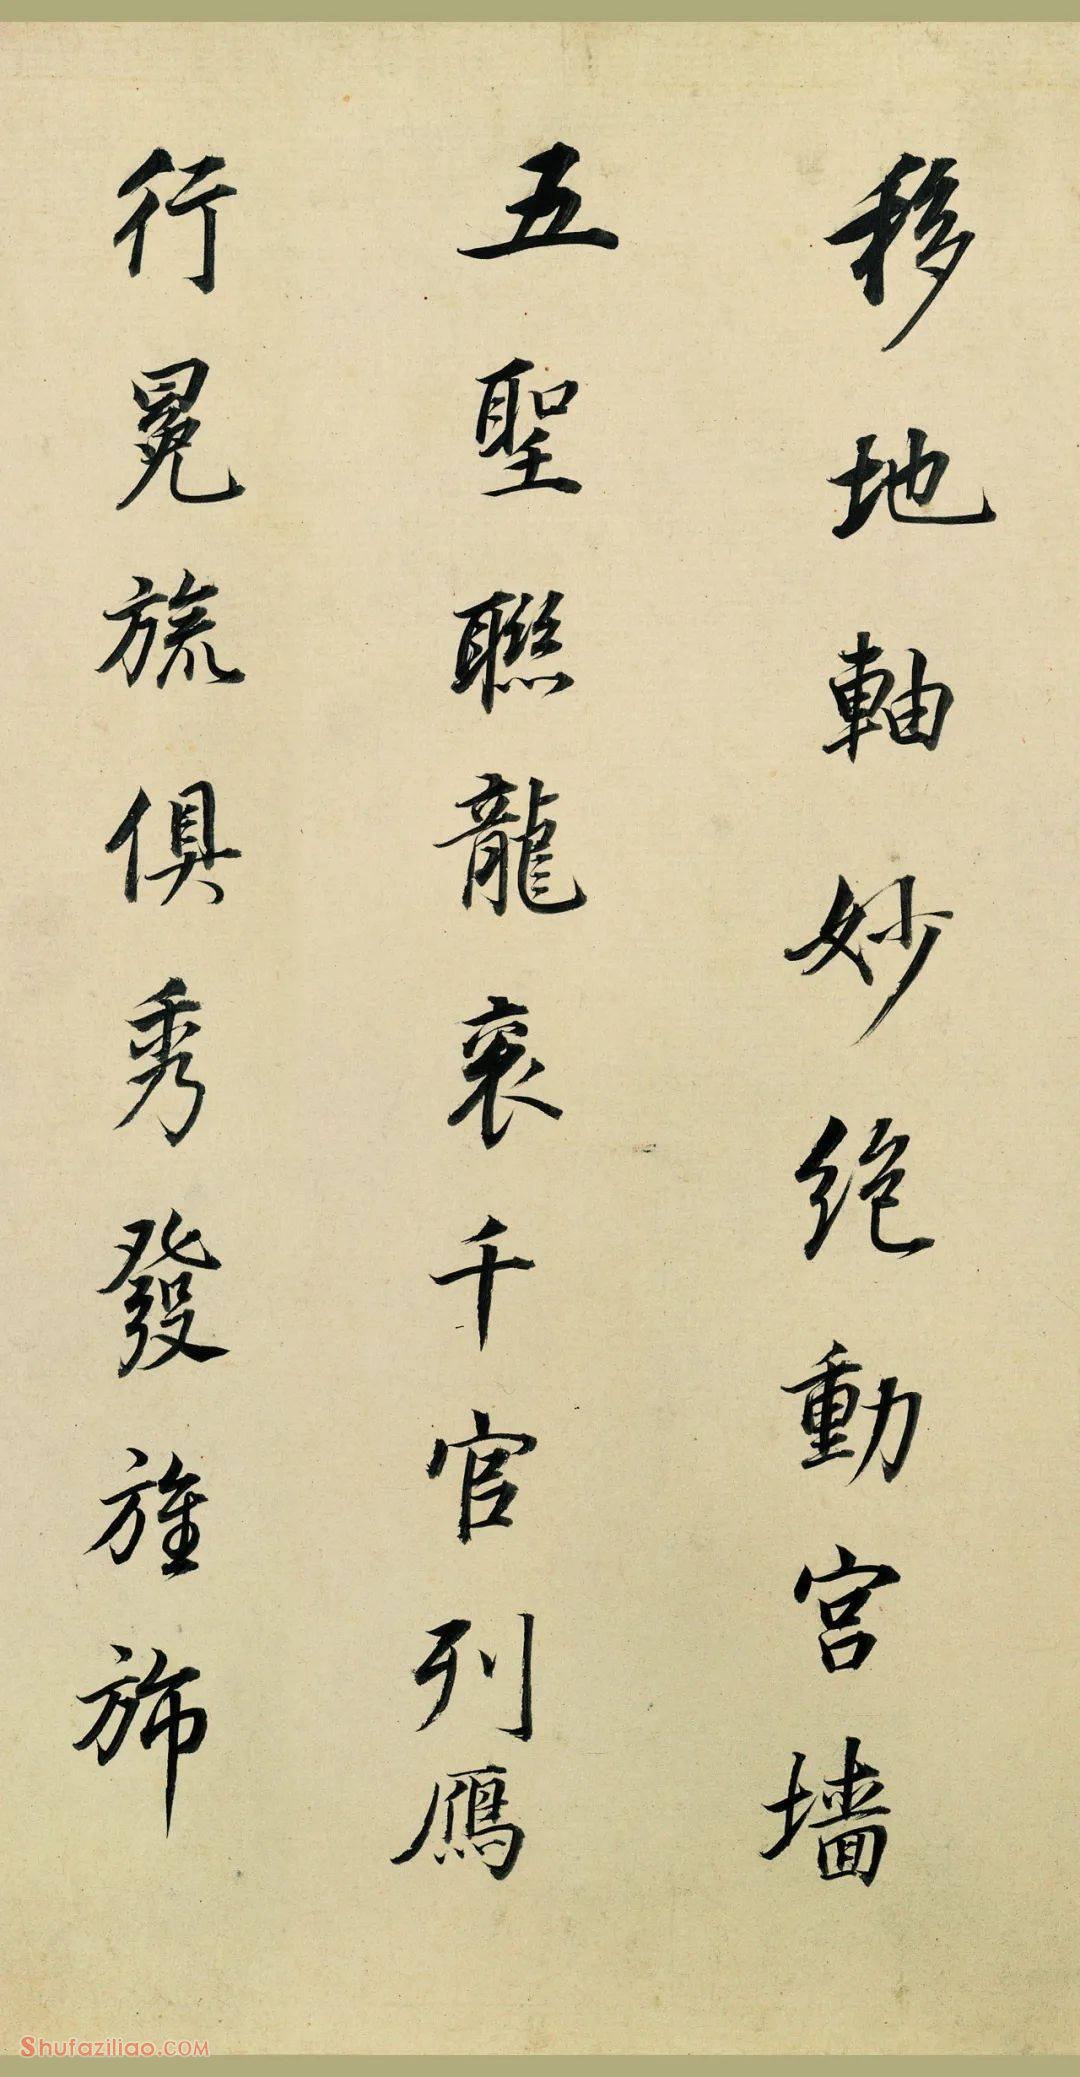 移地軸妙絶動宫墻
五聖聯龍衮千官列鴈
行冕旒俱秀發旌斾
Shufaziliao.COM